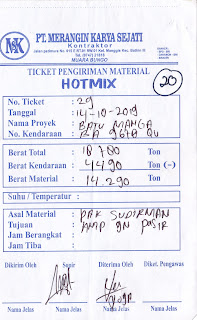 MK
PT. MERANGIN KARYA SEJATI
Kontraktor
MUARA BUNGO
TICKET PENGIRIMAN MATERIAL
HOTMIX
20
No. Ticket : 29
Tanggal : 14-10-2019
Nama Proyek : BATU MANGA
No. Kendaraan : BA 9678 QU
Berat Total : 18.780 Ton
Berat Kendaraan : 4490 Ton (-)
Berat Material : 14.290 Ton
Suhu / Temperatur :
Asal Material : PAK SUDIRMAN
Tujuan : AMP GN PASIR
Jam Berangkat :
Jam Tiba :
Dikirim Oleh Supir Diterima Oleh Diket. Pengawas
Nama Jelas Nama Jelas Nama Jelas